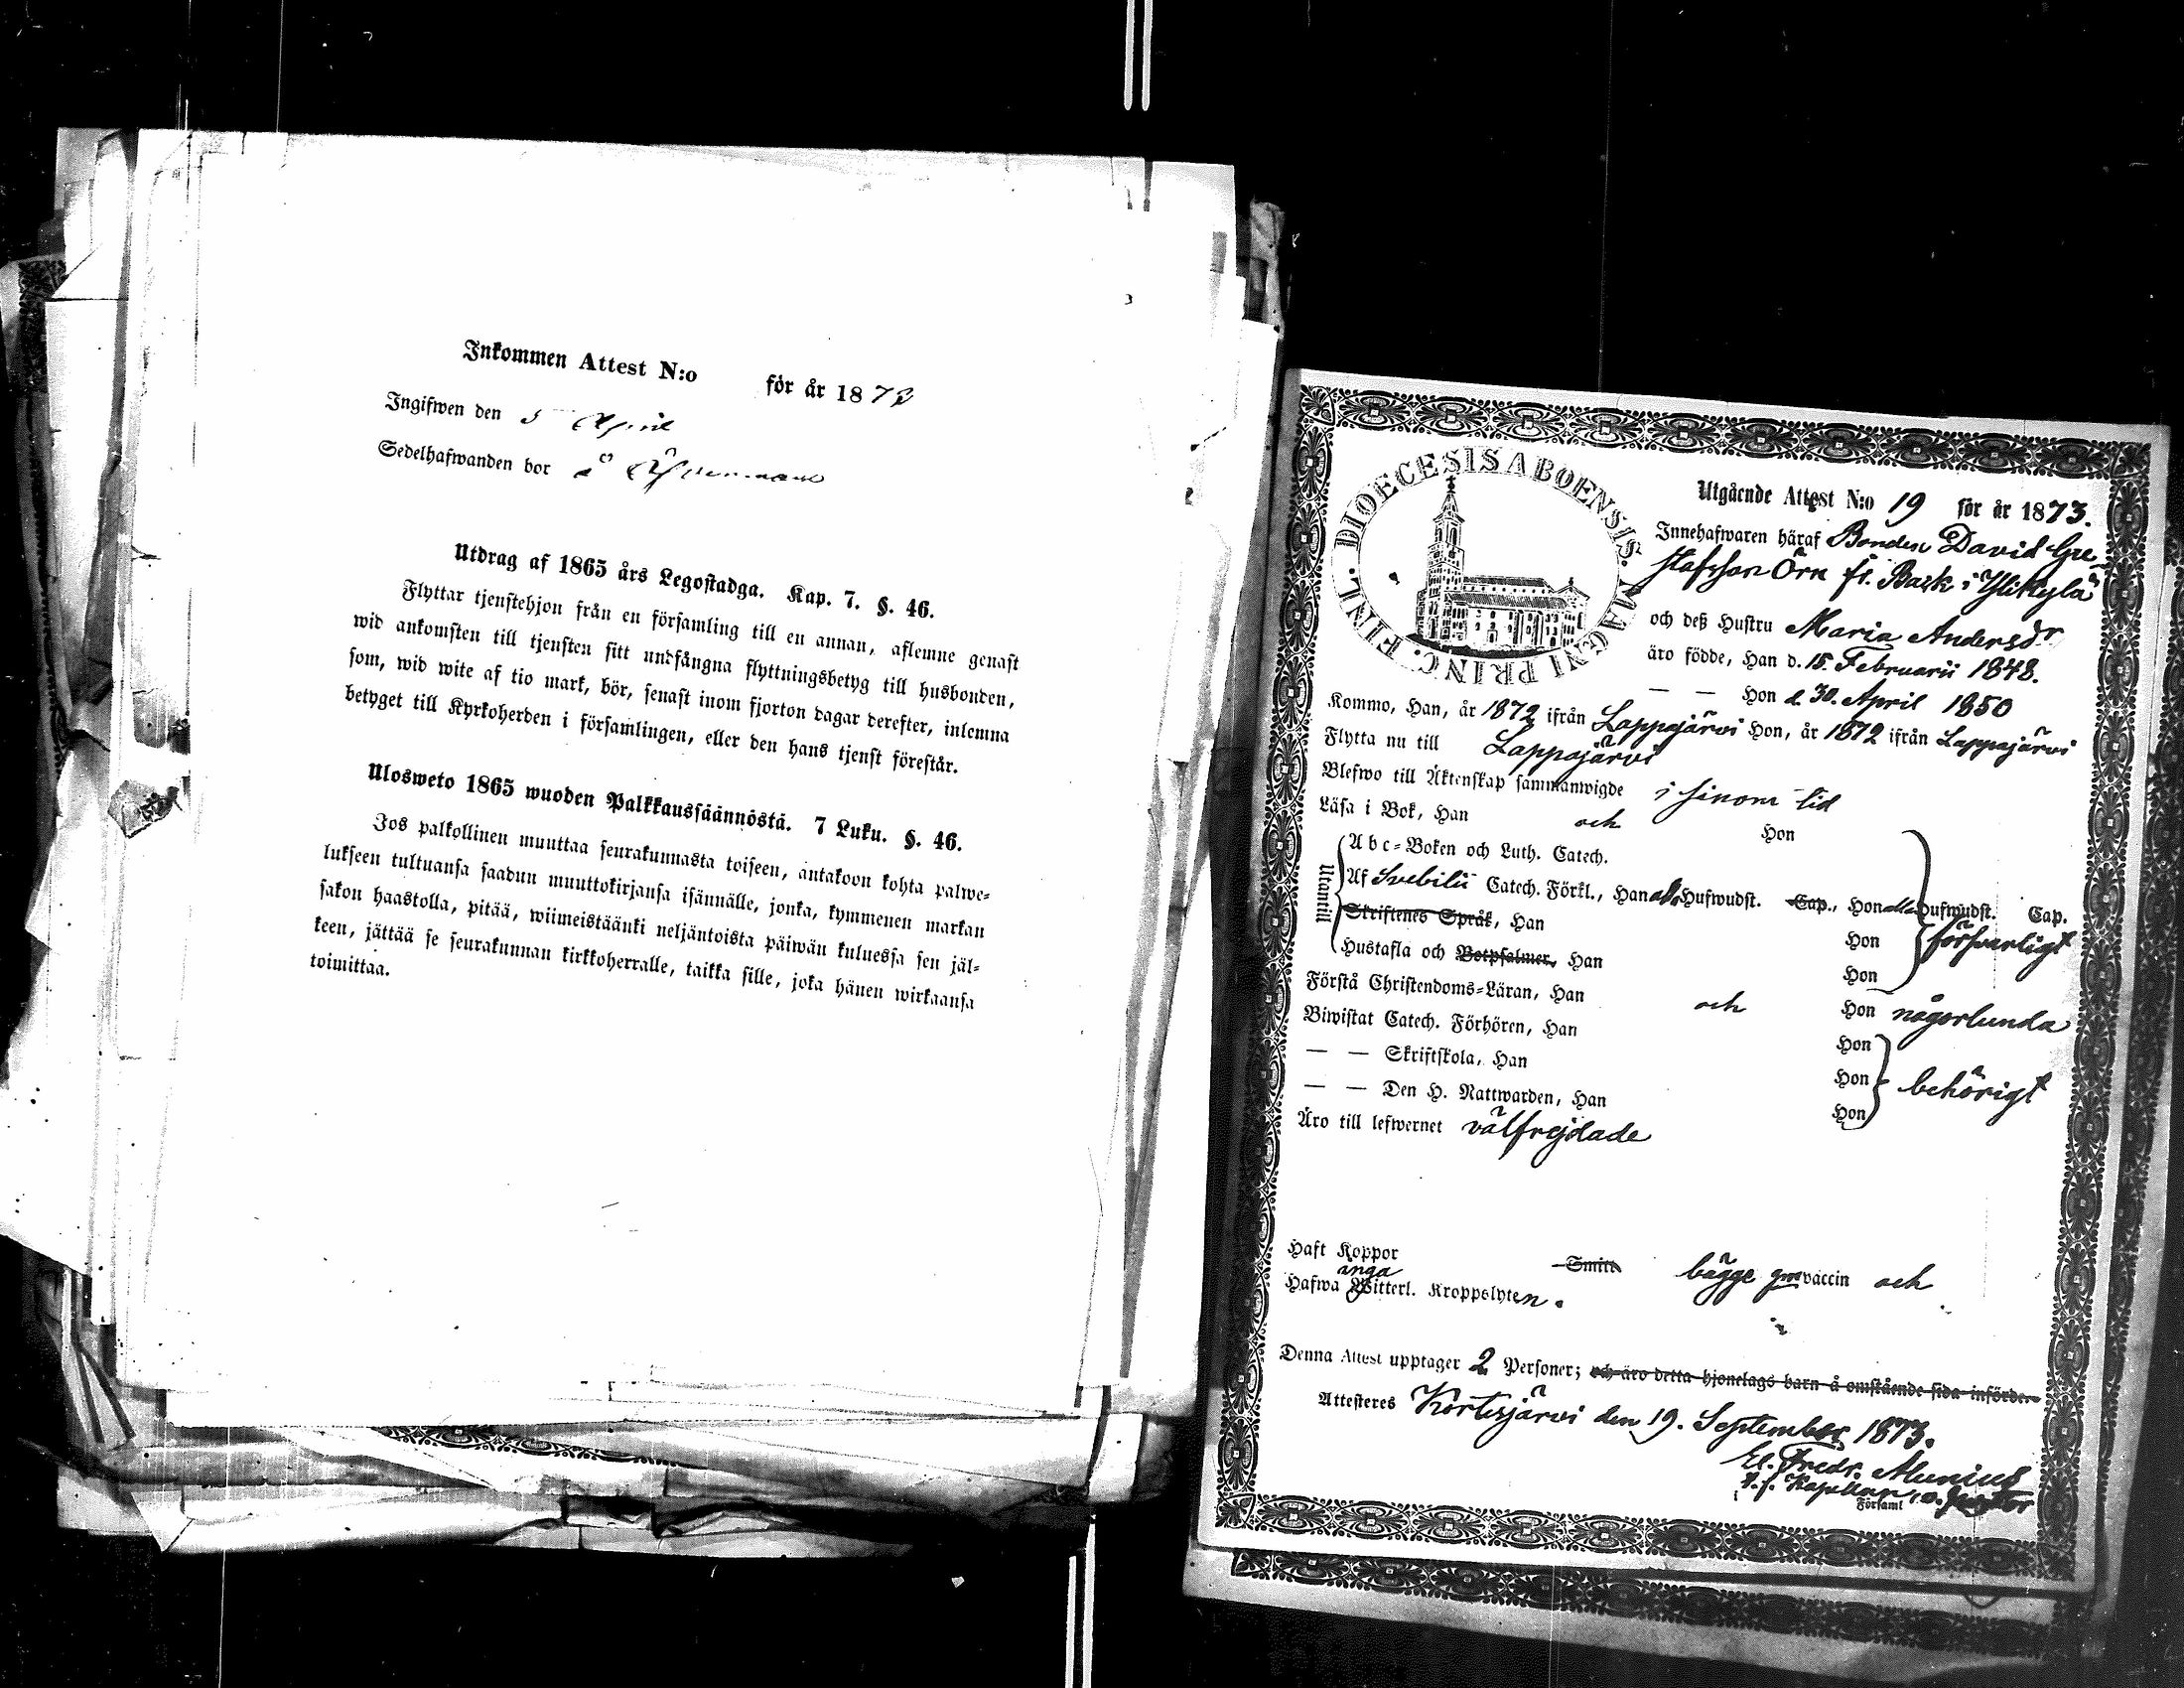 Inkommen Attest N:o för år 1873
Ingifwen den 5 April
Sedelhafwanden bor å
Utdrag af 1865 års Legostadga. Kap. 7. §. 46.
Flyttar tjenstehjon från en församling till en annan, aflemne genast
wid ankomsten till tjensten sitt undfångna flyttningsbetyg till husbonden,
som, wid wite af tio mark, bör, senast inom fjorton dagar derefter, inlemna
betyget till Kyrkoherden i församlingen, eller den hans tjenst förestår.
Ulosweto 1865 wuoden Palkkaussäännöstä. 7 Luku. §. 46.
Jos palkollinen muuttaa seurakunnasta toiseen, antakoon kohta palwe-
lukseen tultuansa saadun muuttokirjansa isännälle, jonka, kymmenen markan
sakon haastolla, pitää, wiimeistäänki neljäntoista päiwän kuluessa sen jäl-
keen, jättää se seurakunnan kirkkoherralle, taikka sille, joka hänen wirkaansa
toimittaa.
DIOECESIS ABOENSIS. MAGNI PRINC. FINL.
Utgående Attest N:o 19 för år 1873.
Innehafwaren häraf Bonden David Gu-
stafsson Örn fr. Bask i Ylikylä
och deß Hustru Maria Andersdr
äro födde, Han d. 15. Februarii 1848.
— — Hon d. 30. April 1850
Kommo, Han, år 1872 ifrån Lappajärvi Hon, år 1872 ifrån Lappajärvi
Flytta nu till Lappajärvi
Blefwo till Äktenskap sammanwigde i sinom tid
Läsa i Bok, Han och Hon
Utantill
Abc-Boken och Luth. Catech.
Af Svebilii Catech. Förkl., Han alla Hufwudst. Cap., Hon alla Hufwudst. Cap.
Skriftenes Språk, Han Hon försvarligt
Hustafla och Botpsalmer, Han Hon
Förstå Christendoms-Läran, Han och Hon någorlunda
Biwistat Catech. Förhören, Han Hon
— — Skriftskola, Han Hon behörigt
— — Den H. Nattwarden, Han Hon
Äro till lefwernet välfrejdade
Haft Koppor Smitt bägge gm vaccin och
inga
Hafwa Witterl. Kroppslyten.
Denna Attest upptager 2 Personer; och äro detta hjonelags barn å omstående sida införde.
Attesteres Kortesjärvi den 19. September 1873.
El. Fredr. Alenius
t. f. Kapellan i
Församl